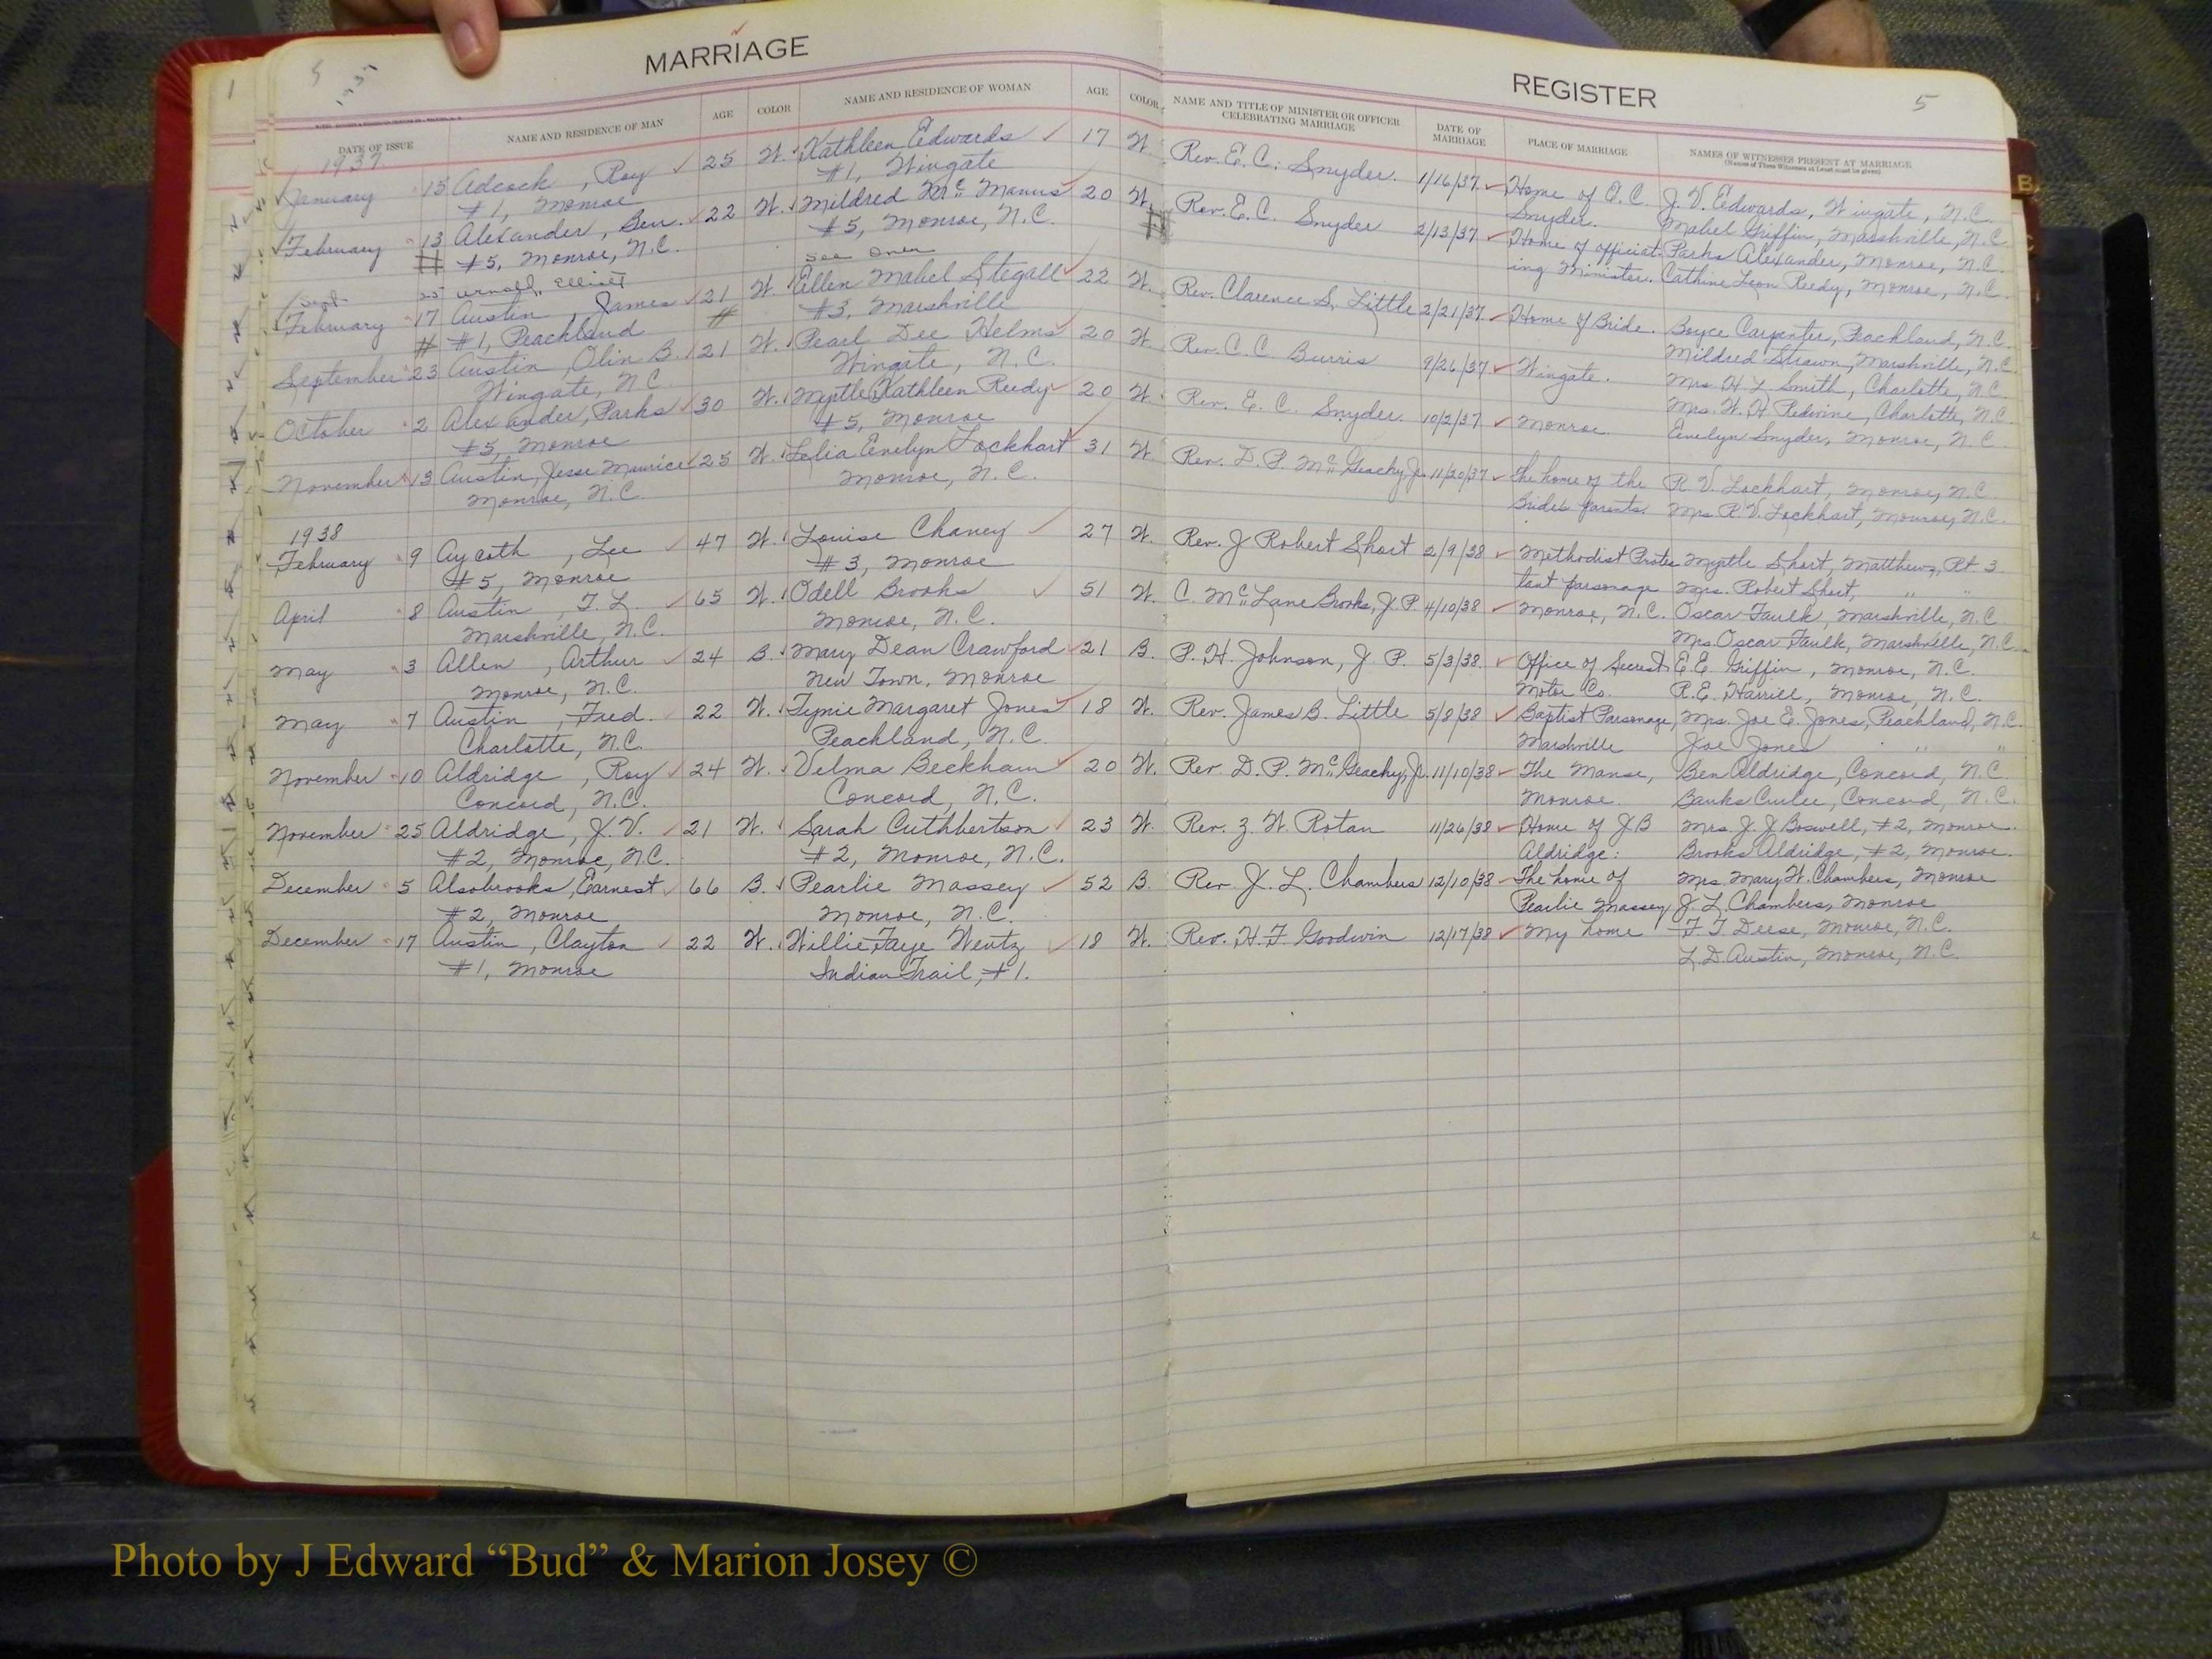 MARRIAGE REGISTER
5 1937 5
DATE OF ISSUE NAME AND RESIDENCE OF MAN AGE COLOR NAME AND RESIDENCE OF WOMAN AGE COLOR NAME AND TITLE OF MINISTER OR OFFICER CELEBRATING MARRIAGE DATE OF MARRIAGE PLACE OF MARRIAGE NAMES OF WITNESSES PRESENT AT MARRIAGE
(Names of Three Witnesses at Least must be given)
1937
January 15 Adcock, Roy 25 W. Kathleen Edwards 17 W. Rev. E. C. Snyder. 1/16/37 Home of E. C. J. V. Edwards, Wingate, N.C.
#1, Monroe #1, Wingate Snyder. Mabel Griffin, Marshville, N.C.
February 13 Alexander, Ben. 22 W. Mildred McManus 20 W. Rev. E. C. Snyder 2/13/37 Home of officiat- Parks Alexander, Monroe, N.C.
# #5, Monroe, N.C. #5, Monroe, N.C. # ing Minister. Cathine Leon Reedy, Monroe, N.C.
Sept. 25 Elliott see over
February 17 Austin, James 21 W. Ellen Mabel Stegall 22 W. Rev. Clarence S. Little 2/21/37 Home of Bride. Boyce Carpenter, Peachland, N.C.
# #1, Peachland # #3, Marshville Mildred Strawn, Marshville, N.C.
September 23 Austin, Olin B. 21 W. Pearl Dee Helms 20 W. Rev. C. C. Burris 9/26/37 Wingate. Mrs. H. L. Smith, Charlotte, N.C.
Wingate, N.C. Wingate, N.C. Mrs. W. H. Redwine, Charlotte, N.C.
October 2 Alexander, Parks 30 W. Myrtle Kathleen Reedy 20 W. Rev. E. C. Snyder. 10/2/37 Monroe Evelyn Snyder, Monroe, N.C.
#5, Monroe #5, Monroe
November 13 Austin, Jesse Maurice 25 W. Lelia Evelyn Lockhart 31 W. Rev. D. P. McGeachy, Jr. 11/20/37 The home of the R. V. Lockhart, Monroe, N.C.
Monroe, N.C. Monroe, N.C. Bride's parents. Mrs. R. V. Lockhart, Monroe, N.C.
1938
February 9 Aycoth, Lee 47 W. Louise Chaney 27 W. Rev. J Robert Short 2/9/38 Methodist Protes- Myrtle Short, Matthews, Rt 3
#5, Monroe #3, Monroe tant parsonage Mrs. Robert Short, " "
April 8 Austin, T. L. 65 W. Odell Brooks 51 W. C. McLane Brooks, J. P. 4/10/38 Monroe, N.C. Oscar Faulk, Marshville, N.C.
Marshville, N.C. Monroe, N.C. Mrs. Oscar Faulk, Marshville, N.C.
May 3 Allen, Arthur 24 B. Mary Dean Crawford 21 B. P. H. Johnson, J P. 5/3/38. Office of Secrest E. E. Griffin, Monroe, N.C.
Monroe, N.C. New Town, Monroe Motor Co. R. E. Harrill, Monroe, N.C.
May 7 Austin, Fred. 22 W. Tynie Margaret Jones 18 W. Rev. James B. Little 5/8/38 Baptist Parsonage, Mrs. Joe E. Jones, Peachland, N.C.
Charlotte, N.C. Peachland, N.C. Marshville Joe Jones " "
November 10 Aldridge, Roy 24 W. Velma Beckham 20 W. Rev. D. P. McGeachy, Jr. 11/10/38 The Manse, Ben Aldridge, Concord, N.C.
Concord, N.C. Concord, N.C. Monroe. Banks Curlee, Concord, N.C.
November 25 Aldridge, J. V. 21 W. Sarah Cuthbertson 23 W. Rev. Z. W. Rotan 11/26/38 Home of J B Mrs. J. J Boswell, #2, Monroe.
#2, Monroe, N.C. #2, Monroe, N.C. Aldridge. Brooks Aldridge, #2, Monroe.
December 5 Alsobrooks, Earnest 66 B. Pearlie Massey 52 B. Rev. J. L. Chambers 12/10/38 The home of Mrs. Mary W. Chambers, Monroe
#2, Monroe Monroe, N.C. Pearlie Massey J. L. Chambers, Monroe
December 17 Austin, Clayton 22 W. Willie Faye Wentz 18 W. Rev. H. F. Goodwin 12/17/38 My home F. F. Deese, Monroe, N.C.
#1, Monroe Indian Trail, #1. L. D. Austin, Monroe, N.C.
Photo by J Edward “Bud” & Marion Josey ©